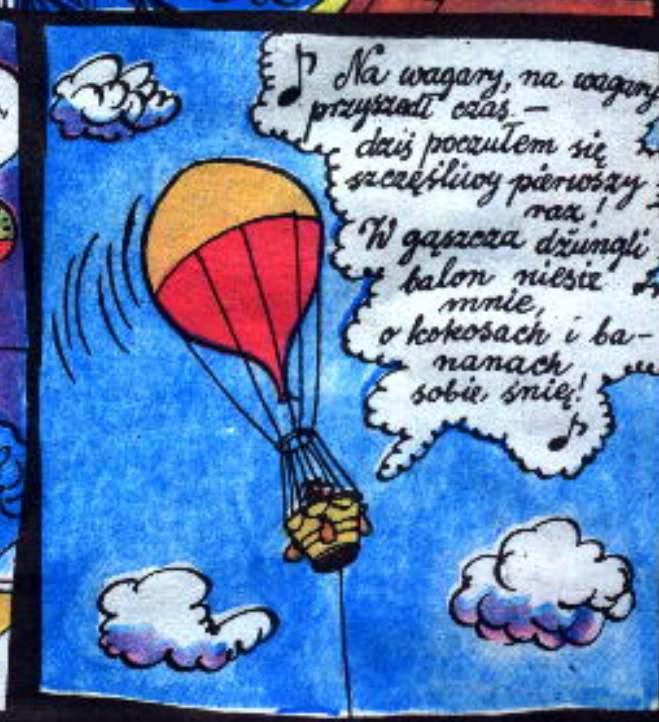 Na wagary, na wagary
przyszedł czas –
dziś poczułem się
szczęśliwy pierwszy
raz!
W gąszcza dżungli
balon niesie
mnie,
o kokosach i ba-
nanach
sobie śnię!